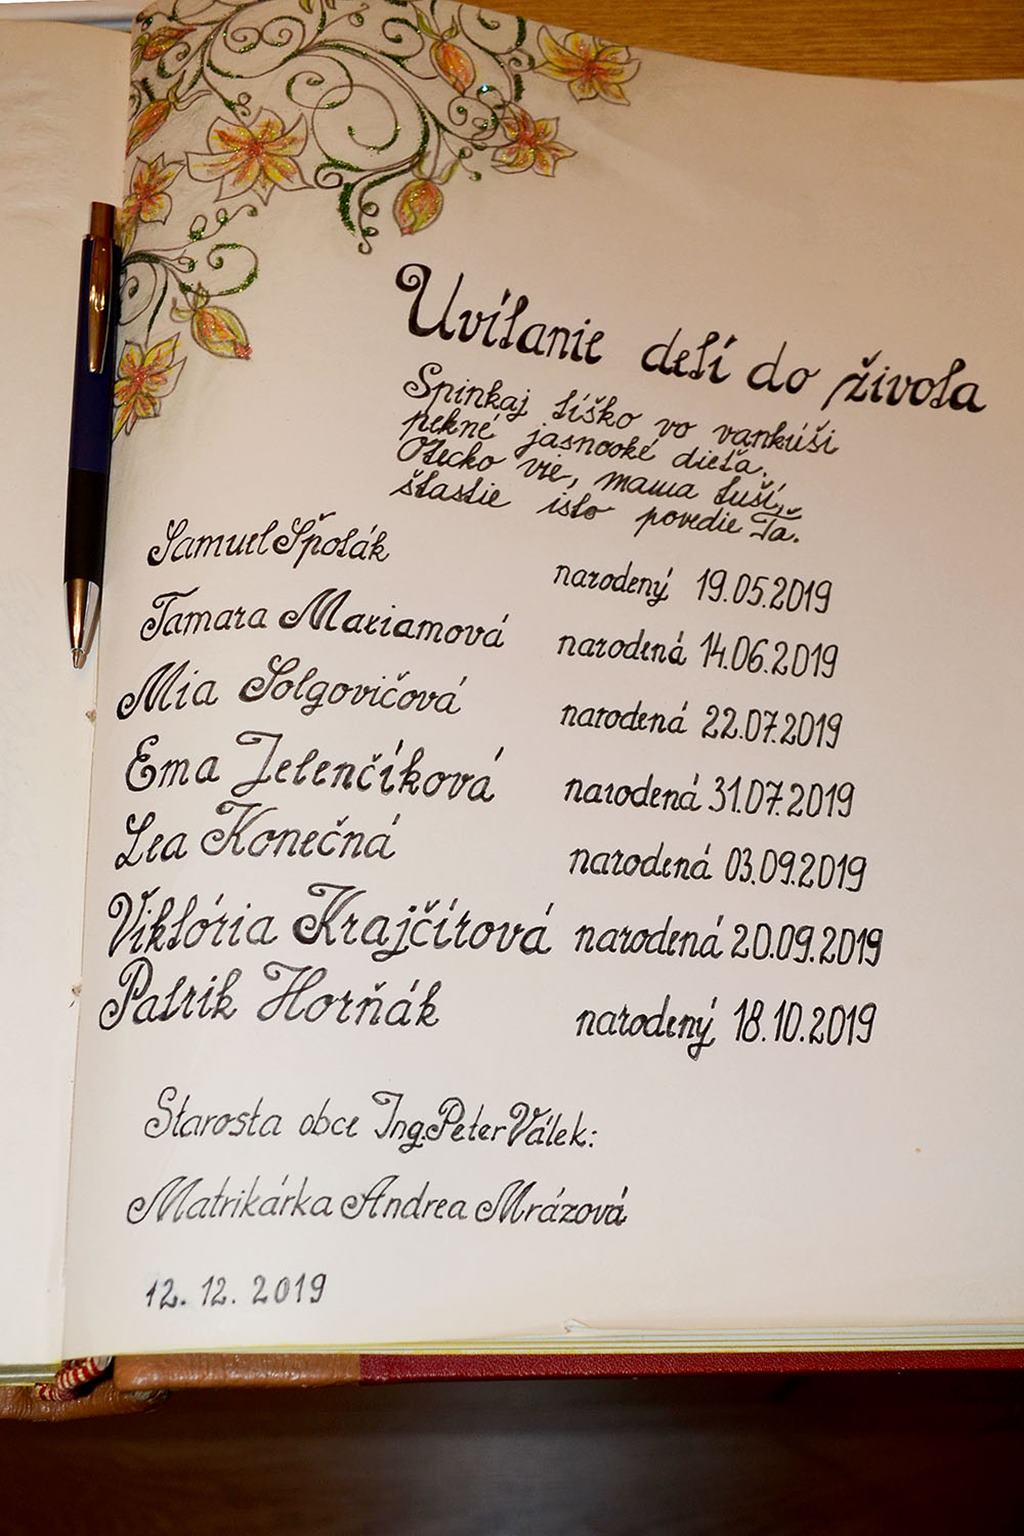 Uvítanie detí do života
Spinkaj tíško vo vankúši
pekné jasnooké dieťa.
Otecko vie, mama tuší,
štastie isto povedie Ťa.
Samuel Špoták narodený 19.05.2019
Tamara Mariamová narodená 14.06.2019
Mia Solgovičová narodená 22.07.2019
Ema Jelenčíková narodená 31.07.2019
Lea Konečná narodená 03.09.2019
Viktória Krajčírová narodená 20.09.2019
Patrik Horňák narodený 18.10.2019
Starosta obce Ing. Peter Válek:
Matrikárka Andrea Mrázová
12. 12. 2019